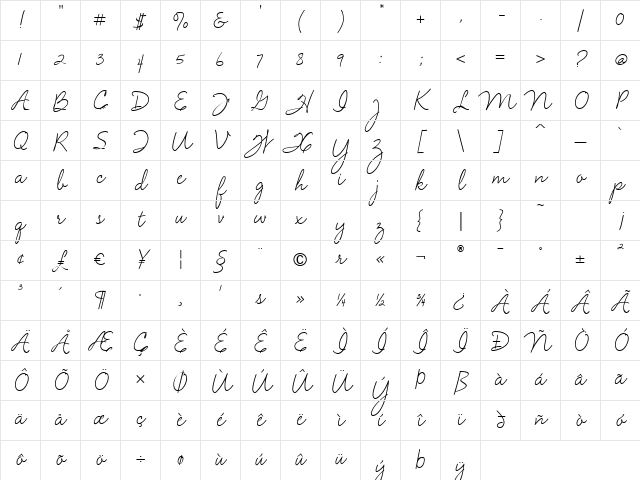 ! " # $ % & ' ( ) * + , - . / 0
1 2 3 4 5 6 7 8 9 : ; < = > ? @
A B C D E F G H I J K L M N O P
Q R S T U V W X Y Z [ \ ] ^ _ `
a b c d e f g h i j k l m n o p
q r s t u v w x y z { | } ~ j
¢ £ € ¥ ¦ § ¨ © r « ¬ ® ¯ ° ± ²
³ ´ ¶ · ¸ ¹ s » ¼ ½ ¾ ¿ À Á Â Ã
Ä Å Æ Ç È É Ê Ë Ì Í Î Ï Ð Ñ Ò Ó
Ô Õ Ö × Ø Ù Ú Û Ü Ý Þ ß à á â ã
ä å æ ç è é ê ë ì í î ï ð ñ ò ó
ô õ ö ÷ ø ù ú û ü ý þ ÿ